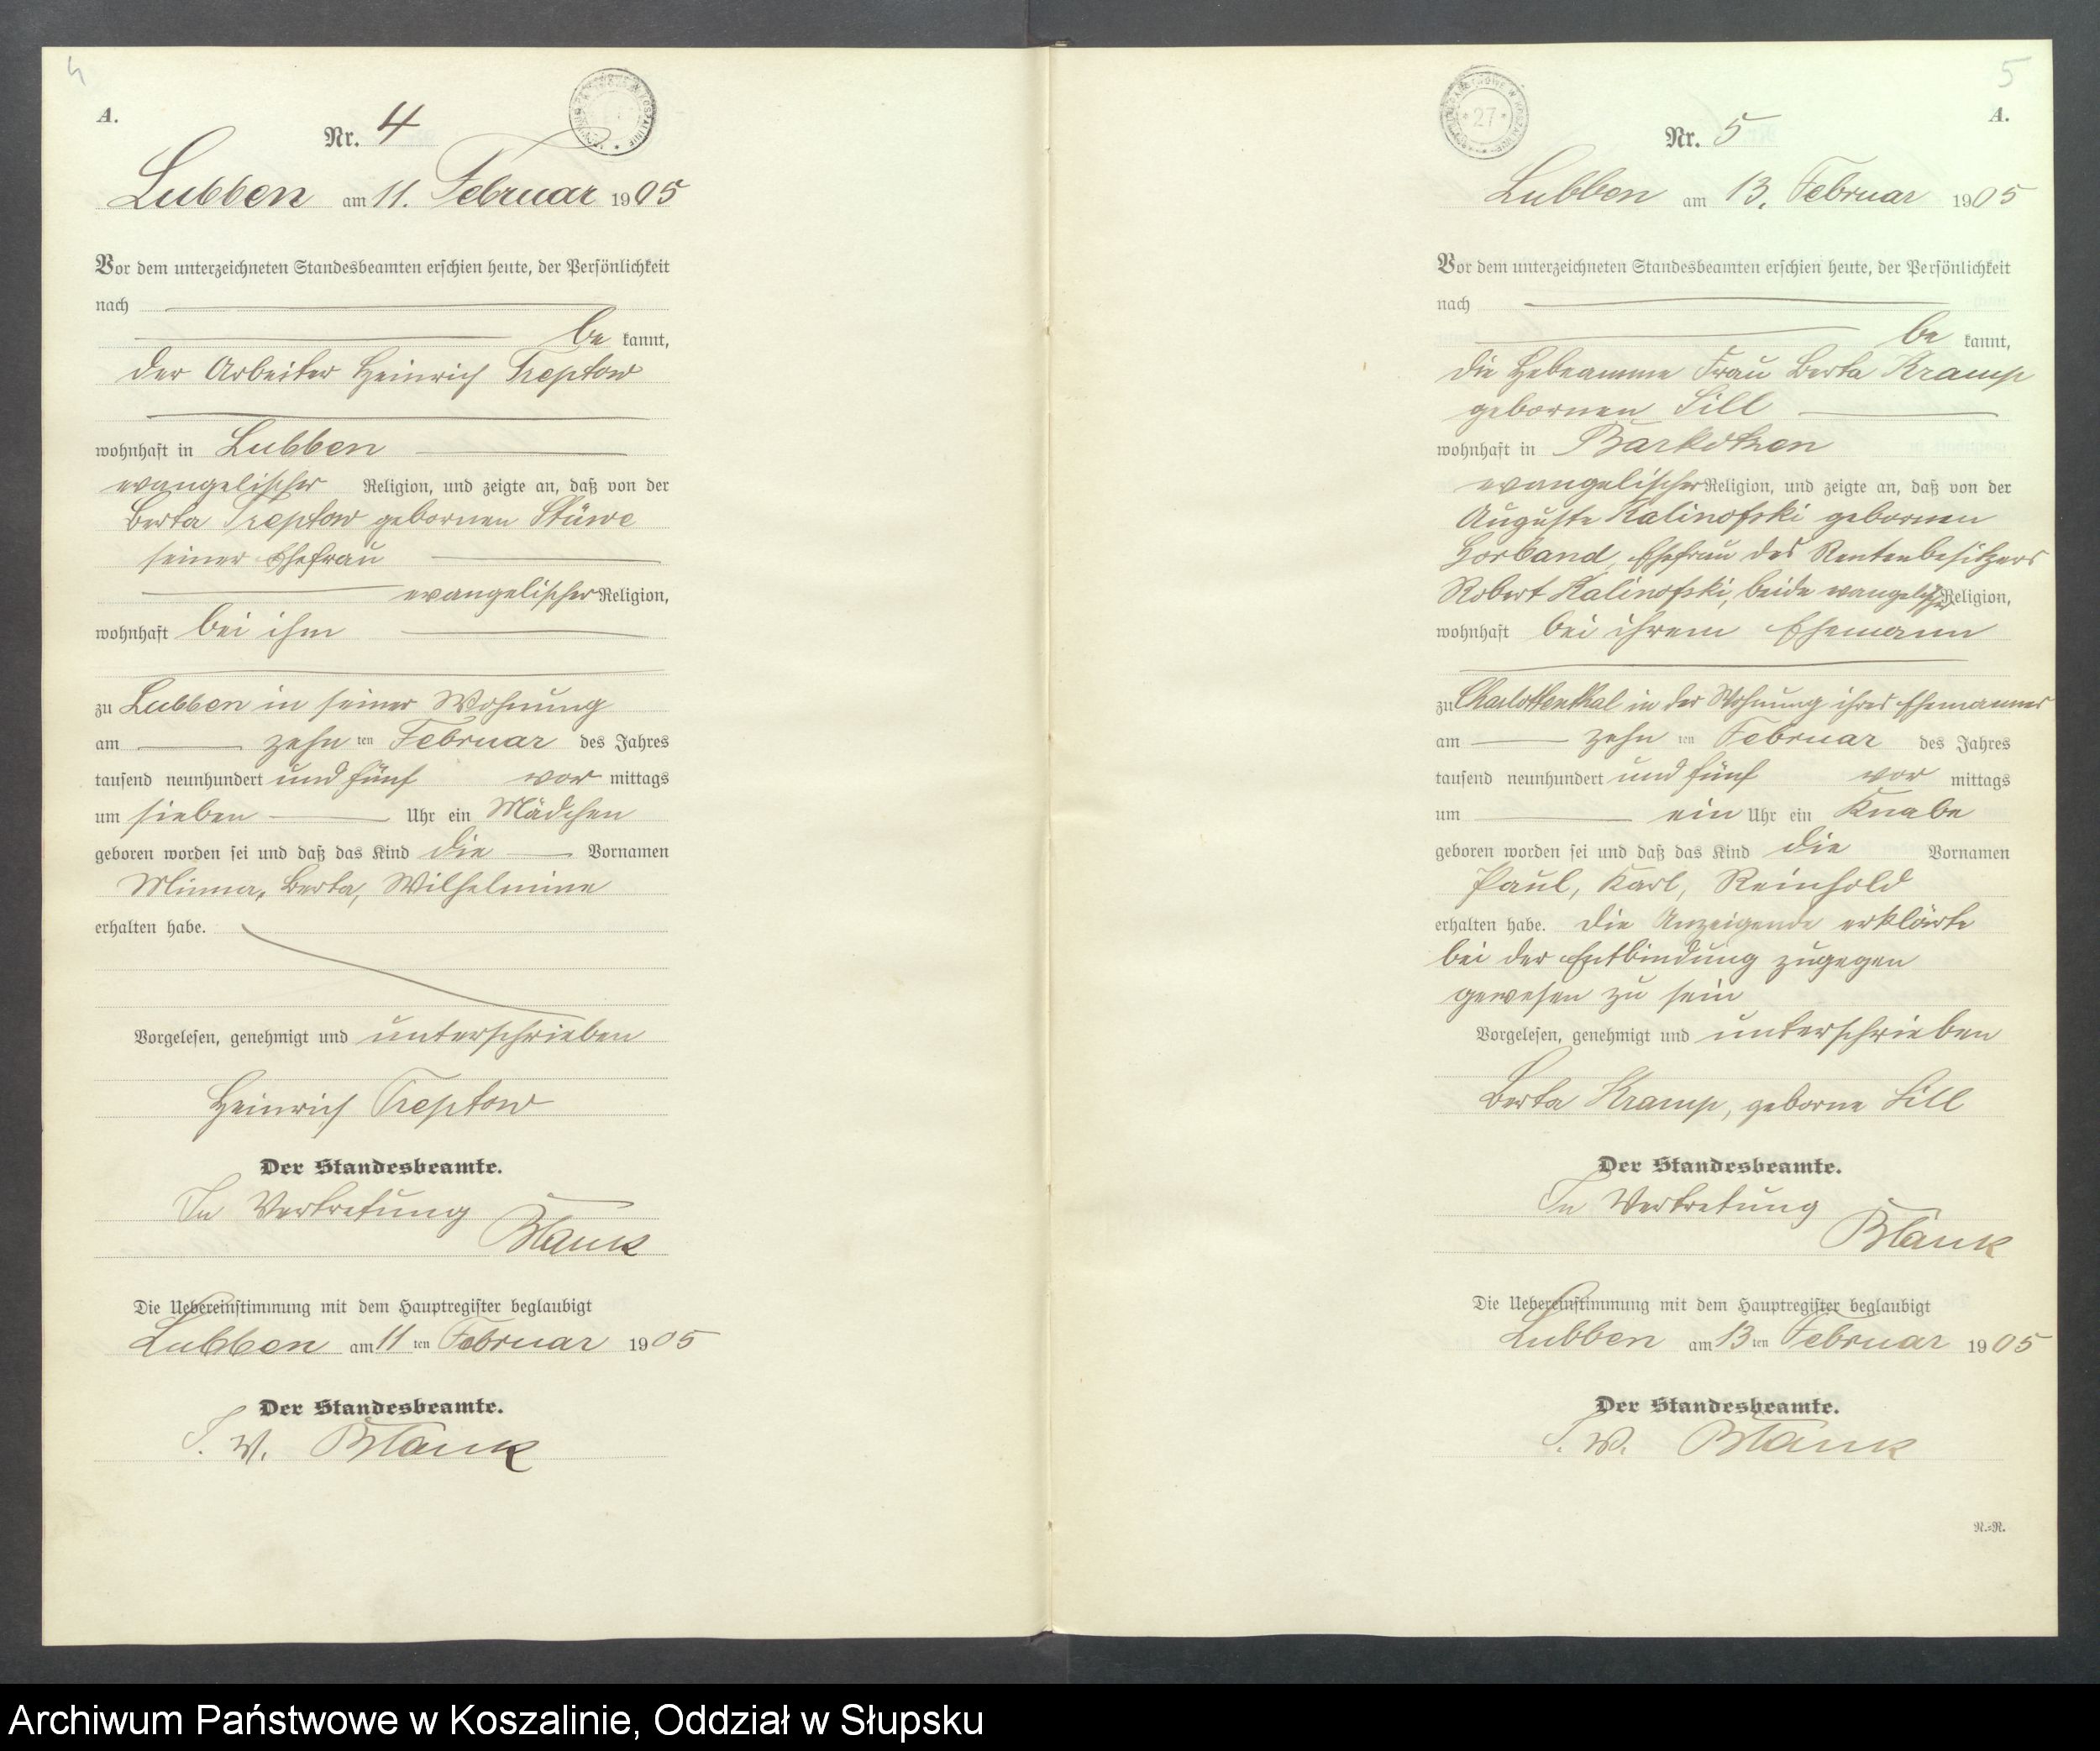 4
A.
Nr. 4
Lubben am 11. Februar 1905
Vor dem unterzeichneten Standesbeamten erschien heute, der Persönlichkeit
nach
be kannt,
der Arbeiter Heinrich Treptow
wohnhaft in Lubben
evangelischer Religion, und zeigte an, daß von der
Berta Treptow gebornen Stüwe
seiner Ehefrau
evangelischer Religion,
wohnhaft bei ihm
zu Lubben in seiner Wohnung
am zehn ten Februar des Jahres
tausend neunhundert und fünf vor mittags
um sieben Uhr ein Mädchen
geboren worden sei und daß das Kind die Vornamen
Minna, Berta, Wilhelmine
erhalten habe.
Vorgelesen, genehmigt und unterschrieben
Heinrich Treptow
Der Standesbeamte.
In Vertretung
Blank
Die Uebereinstimmung mit dem Hauptregister beglaubigt
Lubben am 11 ten Februar 1905
Der Standesbeamte.
I. V. Blank
5
A.
27
Nr. 5
Lubben am 13. Februar 1905
Vor dem unterzeichneten Standesbeamten erschien heute, der Persönlichkeit
nach
be kannt,
die Hebeamme Frau Berta Kramp
gebornen Sill
wohnhaft in Barkotzen
evangelischer Religion, und zeigte an, daß von der
Auguste Kalinofski gebornen
Horband, Ehefrau des Rentenbesitzers
Robert Kalinofski, beide evangelischer Religion,
wohnhaft bei ihrem Ehemann
zu Charlottenthal in der Wohnung ihres Ehemannes
am zehn ten Februar des Jahres
tausend neunhundert und fünf vor mittags
um ein Uhr ein Knabe
geboren worden sei und daß das Kind die Vornamen
Paul, Karl, Reinhold
erhalten habe. Die Anzeigende erklärte
bei der Entbindung zugegen
gewesen zu sein
Vorgelesen, genehmigt und unterschrieben
Berta Kramp, geborne Sill
Der Standesbeamte.
In Vertretung
Blank
Die Uebereinstimmung mit dem Hauptregister beglaubigt
Lubben am 13 ten Februar 1905
Der Standesbeamte.
I. V. Blank
R.=R.
Archiwum Państwowe w Koszalinie, Oddział w Słupsku